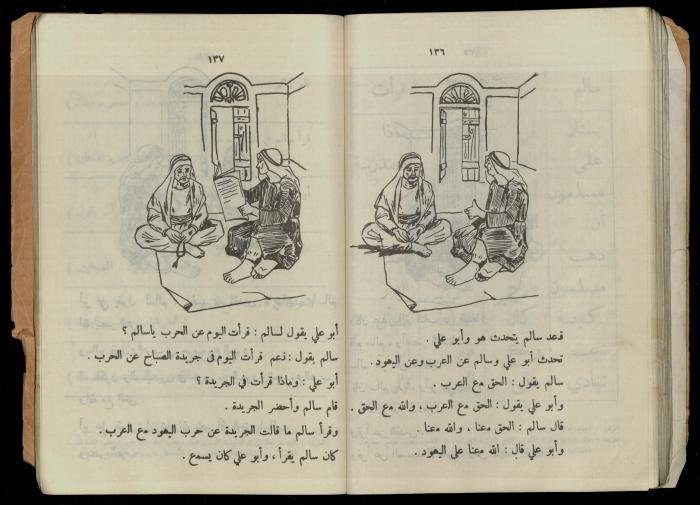 ١٣٦
قعد سالم يتحدث هو وأبو علي .
تحدث أبو علي وسالم عن العرب وعن اليهود .
سالم يقول : الحق مع العرب .
وأبو علي يقول : الحق مع العرب ، والله مع الحق .
قال سالم : الحق معنا ، والله معنا .
وأبو علي قال : الله معنا على اليهود .
١٣٧
أبو علي يقول لسالم : قرأت اليوم عن الحرب ياسالم ؟
سالم يقول : نعم قرأت اليوم في جريدة الصباح عن الحرب .
أبو علي : وماذا قرأت في الجريدة ؟
قام سالم وأحضر الجريدة .
وقرأ سالم ما قالت الجريدة عن حرب اليهود مع العرب .
كان سالم يقرأ ، وأبو علي كان يسمع .